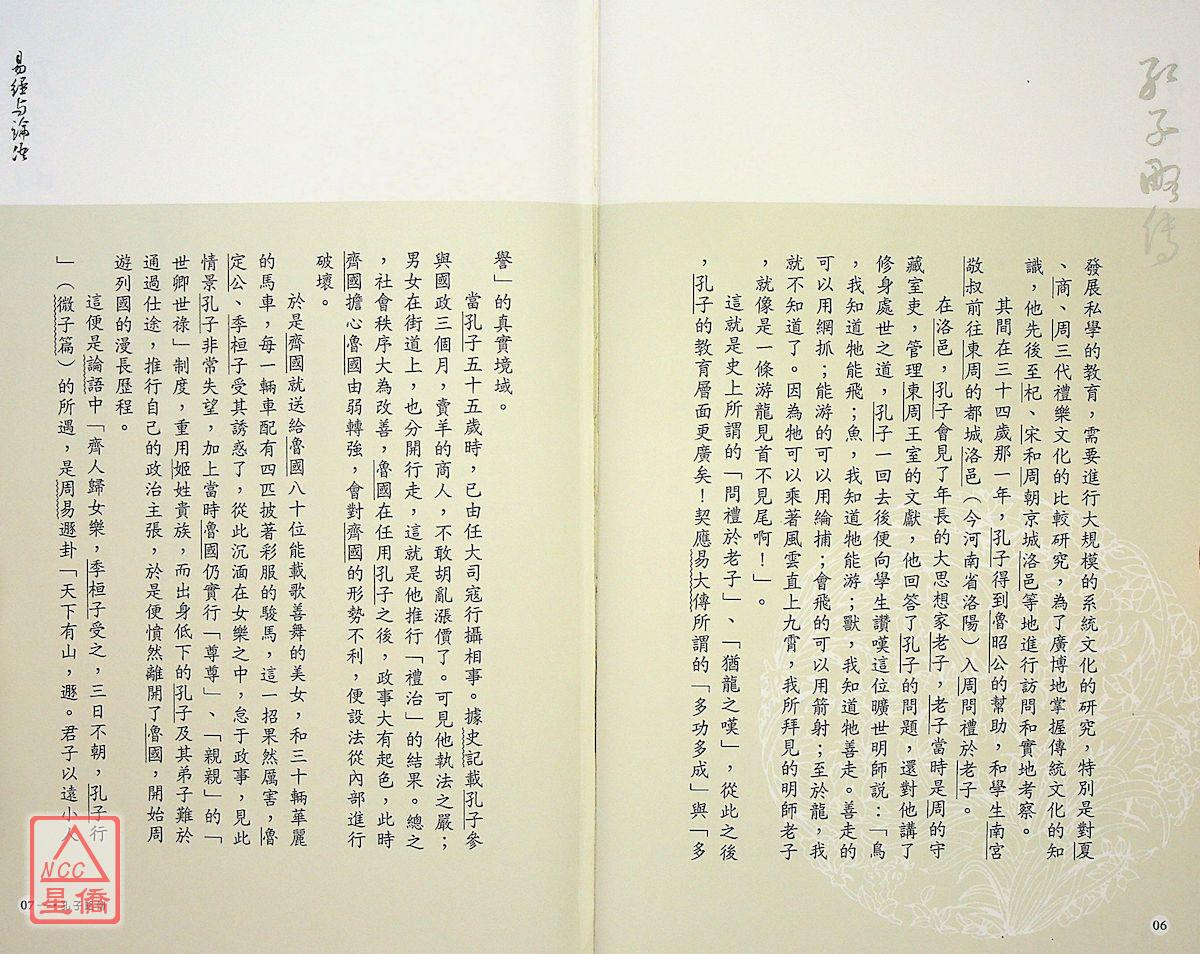 孔子略傳
發展私學的教育，需要進行大規模的系統文化的研究，特別是對夏
、商、周三代禮樂文化的比較研究，為了廣博地掌握傳統文化的知
識，他先後至杞、宋和周朝京城洛邑等地進行訪問和實地考察。
其間在三十四歲那一年，孔子得到魯昭公的幫助，和學生南宮
敬叔前往東周的都城洛邑（今河南省洛陽）入周問禮於老子。
在洛邑，孔子會見了年長的大思想家老子，老子當時是周的守
藏室吏，管理東周王室的文獻，他回答了孔子的問題，還對他講了
修身處世之道，孔子一回去後便向學生讚嘆這位曠世明師說：「鳥
，我知道牠能飛；魚，我知道牠能游；獸，我知道牠善走。善走的
可以用網抓；能游的可以用綸捕；會飛的可以用箭射；至於龍，我
就不知道了。因為牠可以乘著風雲直上九霄，我所拜見的明師老子
，就像是一條游龍見首不見尾啊！」。
這就是史上所謂的「問禮於老子」、「猶龍之嘆」，從此之後
，孔子的教育層面更廣矣！契應易大傳所謂的「多功多成」與「多
06
易經与論語
譽」的真實境域。
當孔子五十五歲時，已由任大司寇行攝相事。據史記載孔子參
與國政三個月，賣羊的商人，不敢胡亂漲價了。可見他執法之嚴；
男女在街道上，也分開行走，這就是他推行「禮治」的結果。總之
，社會秩序大為改善，魯國在任用孔子之後，政事大有起色，此時
齊國擔心魯國由弱轉強，會對齊國的形勢不利，便設法從內部進行
破壞。
於是齊國就送給魯國八十位能載歌善舞的美女，和三十輛華麗
的馬車，每一輛車配有四匹披著彩服的駿馬，這一招果然厲害，魯
定公、季桓子受其誘惑了，從此沉湎在女樂之中，怠于政事，見此
情景孔子非常失望，加上當時魯國仍實行「尊尊」、「親親」的「
世卿世祿」制度，重用姬姓貴族，而出身低下的孔子及其弟子難於
通過仕途，推行自己的政治主張，於是便憤然離開了魯國，開始周
遊列國的漫長歷程。
這便是論語中「齊人歸女樂，季桓子受之，三日不朝，孔子行
」（微子篇）的所遇，是周易遯卦「天下有山，遯。君子以遠小人
07
孔子略傳
NCC
星僑